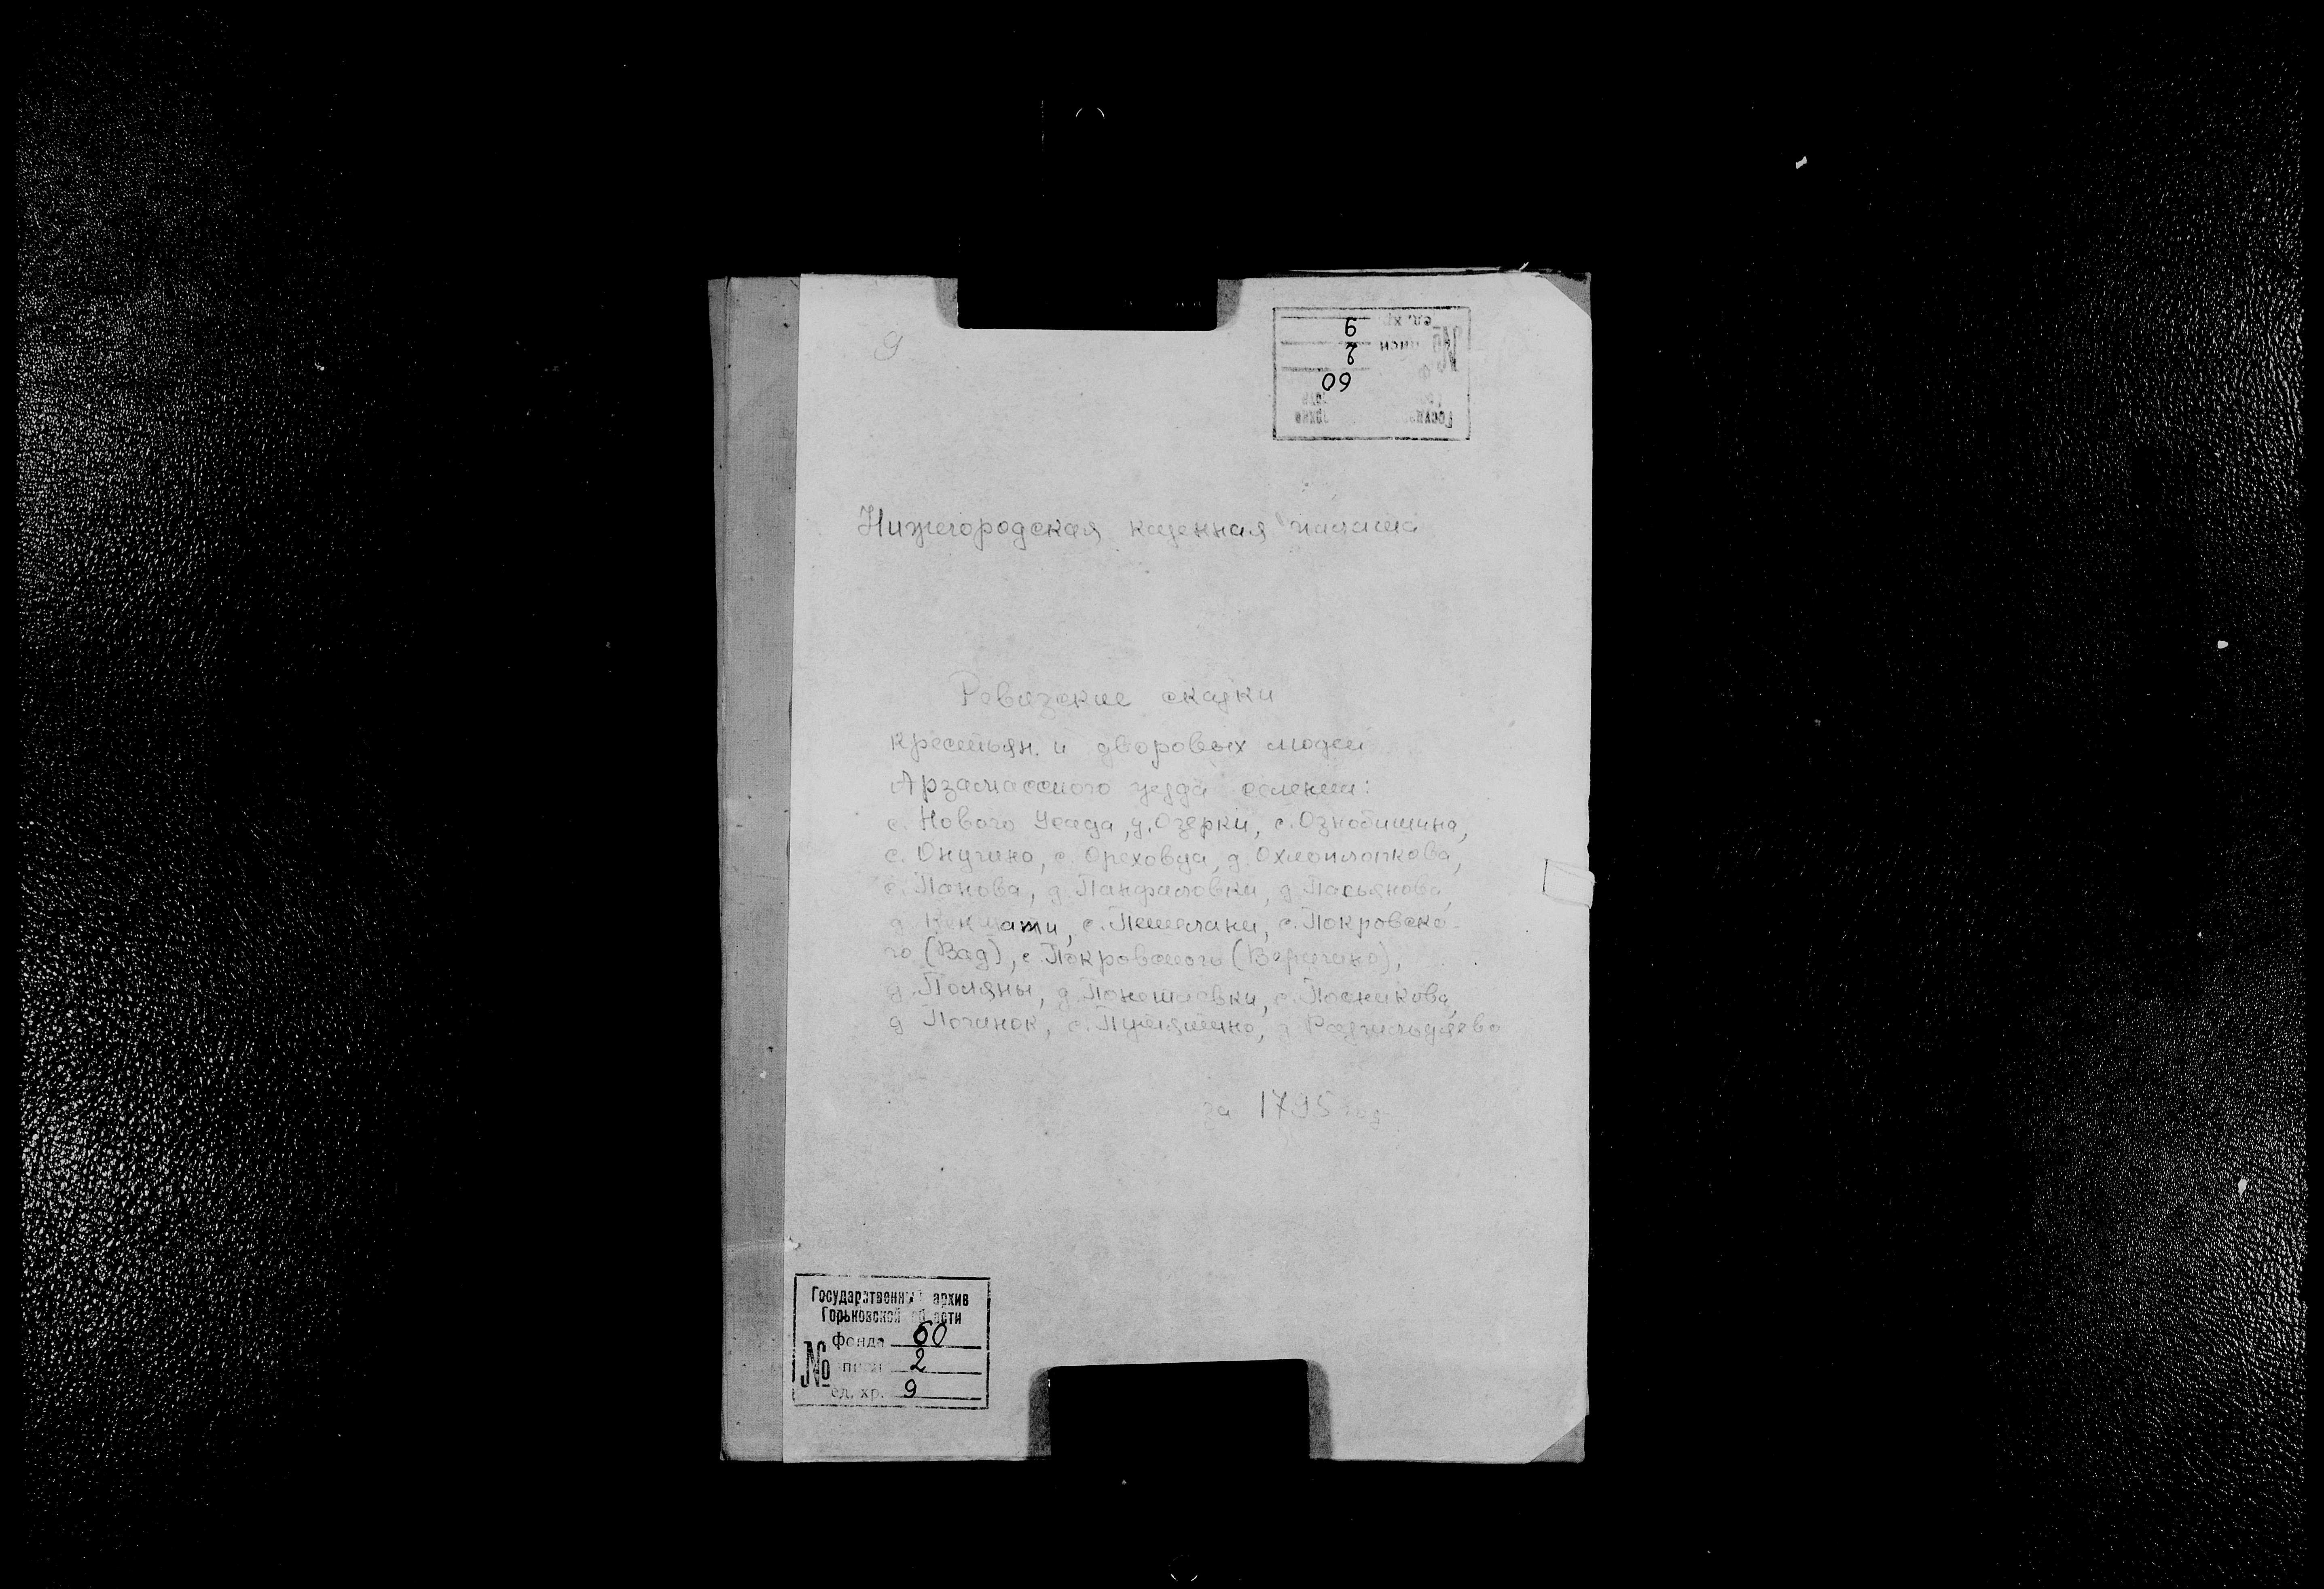 9
ед. хр. 9
№ описи 2
60
Нижегородская казенная палата
Ревизские сказки
крестьян. и дворовых людей
Арзамасского уезда селений:
с. Нового Усада, д. Озерки, с. Ознобишина,
с. Онучино, с. Ореховца, д. Охлопкова,
с. Панова, д. Панфиловки, д. Пасьянова,
д. с. Пешелани, с. Покровско-
го (Вад), с. Покровского
д. Поляны, д. с. Посникова,
д. Починок, с. д.
за 1795 год
Государственный архив
Горьковской области
№ фонда 60
описи 2
ед. хр. 9